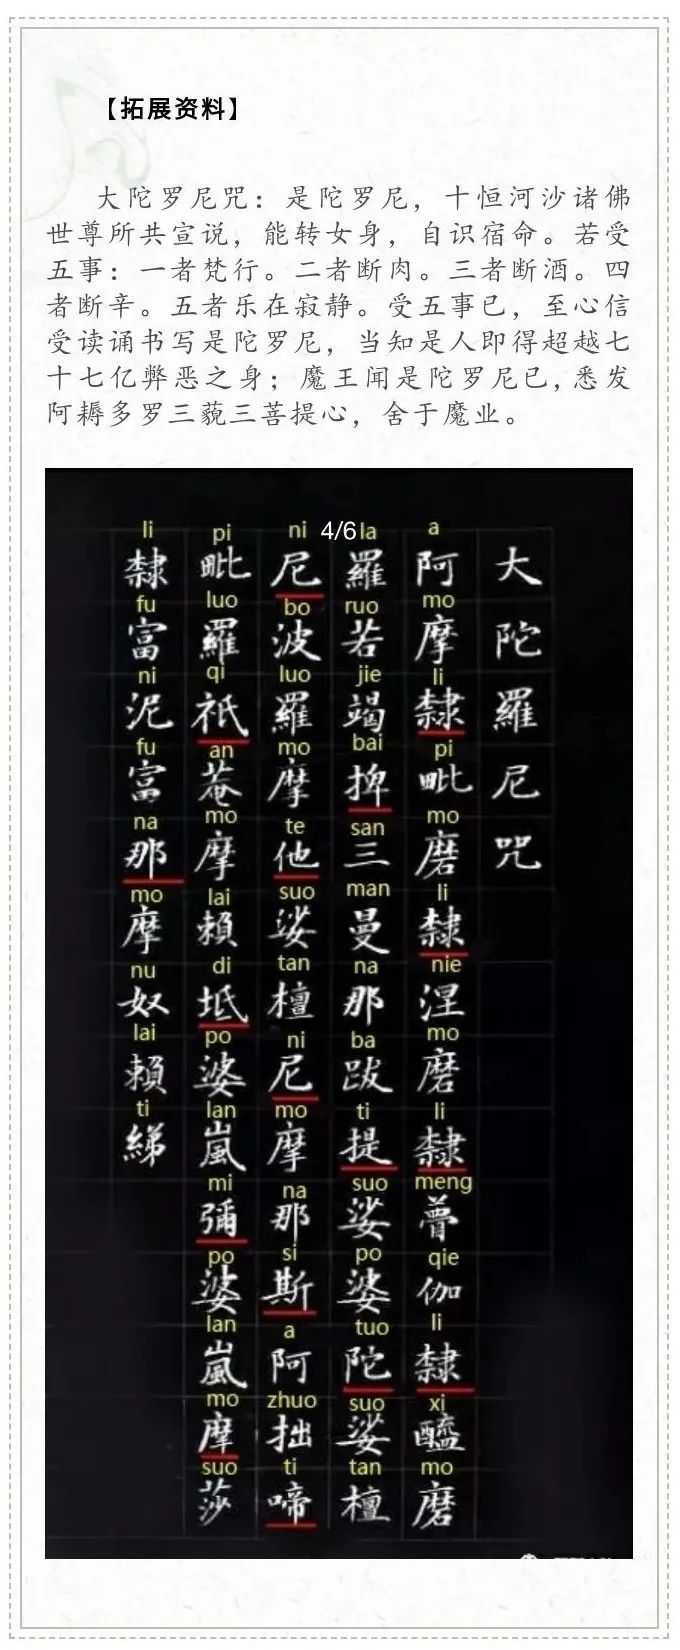 【拓展资料】
大陀罗尼咒：是陀罗尼，十恒河沙诸佛
世尊所共宣说，能转女身，自识宿命。若受
五事：一者梵行。二者断肉。三者断酒。四
者断辛。五者乐在寂静。受五事已，至心信
受读诵书写是陀罗尼，当知是人即得超越七
十七亿弊恶之身；魔王闻是陀罗尼已,悉发
阿耨多罗三藐三菩提心，舍于魔业。
4/6
大陀羅尼咒
a mo li pi mo li nie mo li meng qie li xi mo
阿摩隸毗磨隸涅磨隸瞢伽隸醯磨
la ruo jie bai san man na ba ti suo po tuo suo tan
羅若竭捭三曼那跋提娑婆陀娑檀
ni bo luo mo te suo tan ni mo na si a zhuo ti
尼波羅摩他娑檀尼摩那斯阿拙啼
pi luo qi an mo lai di po lan mi po lan mo suo
毗羅祇菴摩賴坻婆嵐彌婆嵐摩莎
li fu ni fu na mo nu lai ti
隸富泥富那摩奴賴綈